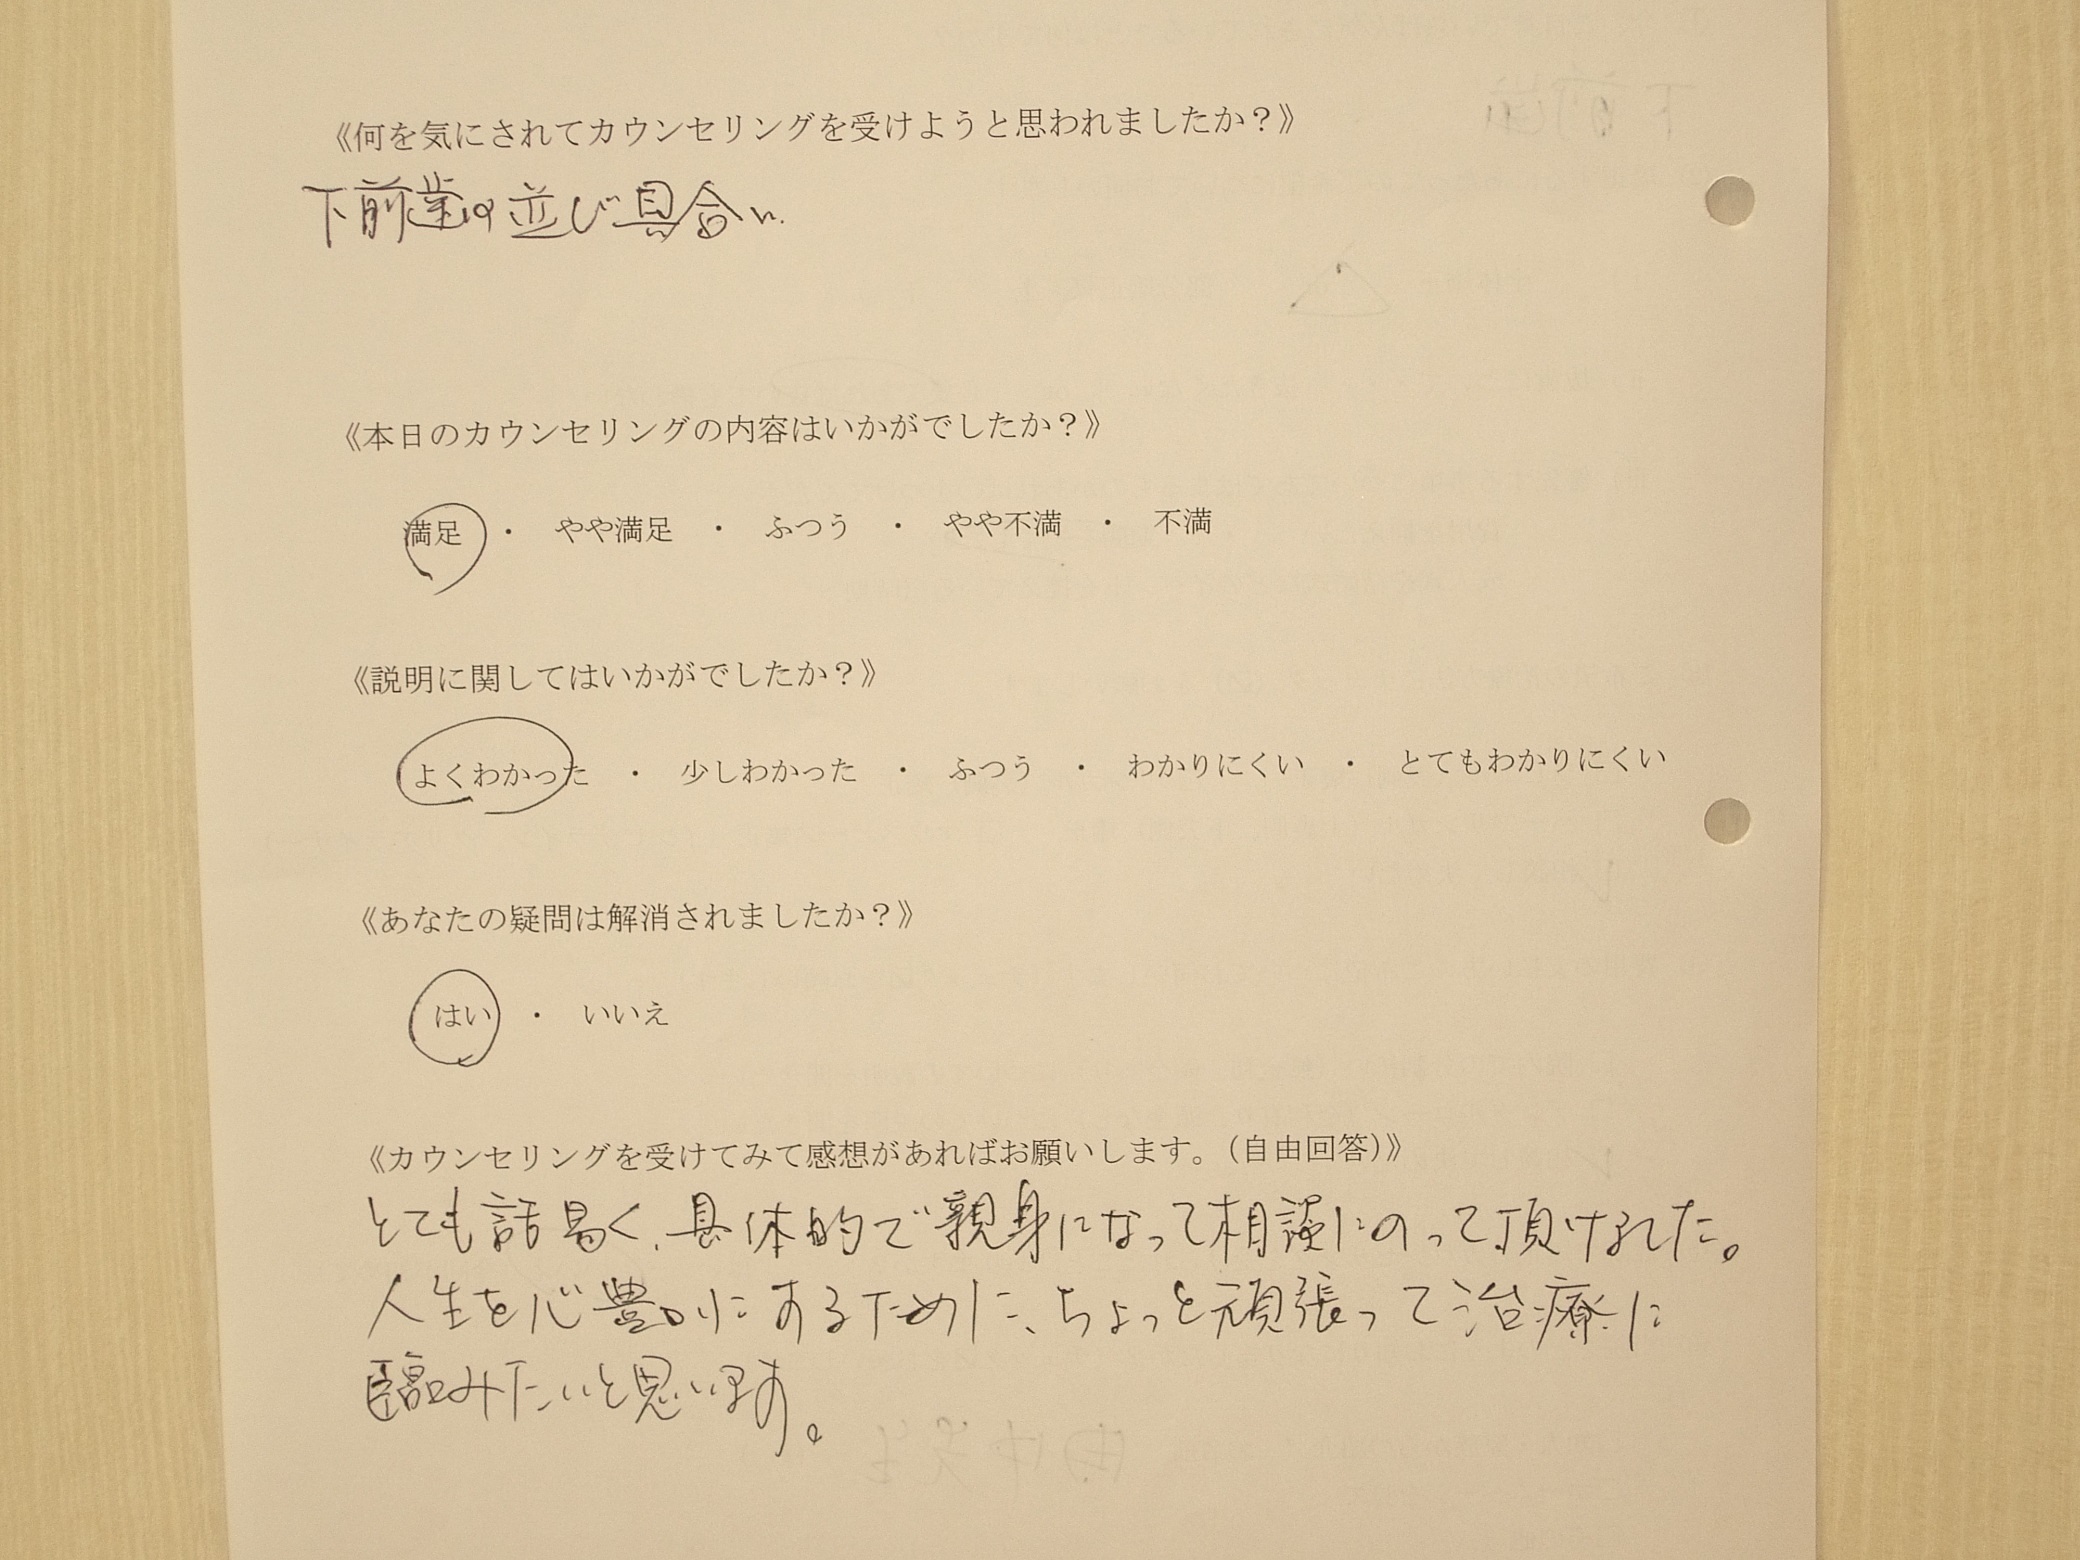 《何を気にされてカウンセリングを受けようと思われましたか？》
下前歯の並び具合い.
《本日のカウンセリングの内容はいかがでしたか？》
満足 ・ やや満足 ・ ふつう ・ やや不満 ・ 不満
《説明に関してはいかがでしたか？》
よくわかった ・ 少しわかった ・ ふつう ・ わかりにくい ・ とてもわかりにくい
《あなたの疑問は解消されましたか？》
はい ・ いいえ
《カウンセリングを受けてみて感想があればお願いします。（自由回答）》
とても話易く、具体的で親身になって相談にのって頂けました。
人生を心豊かにするために、ちょっと頑張って治療に
臨みたいと思います。